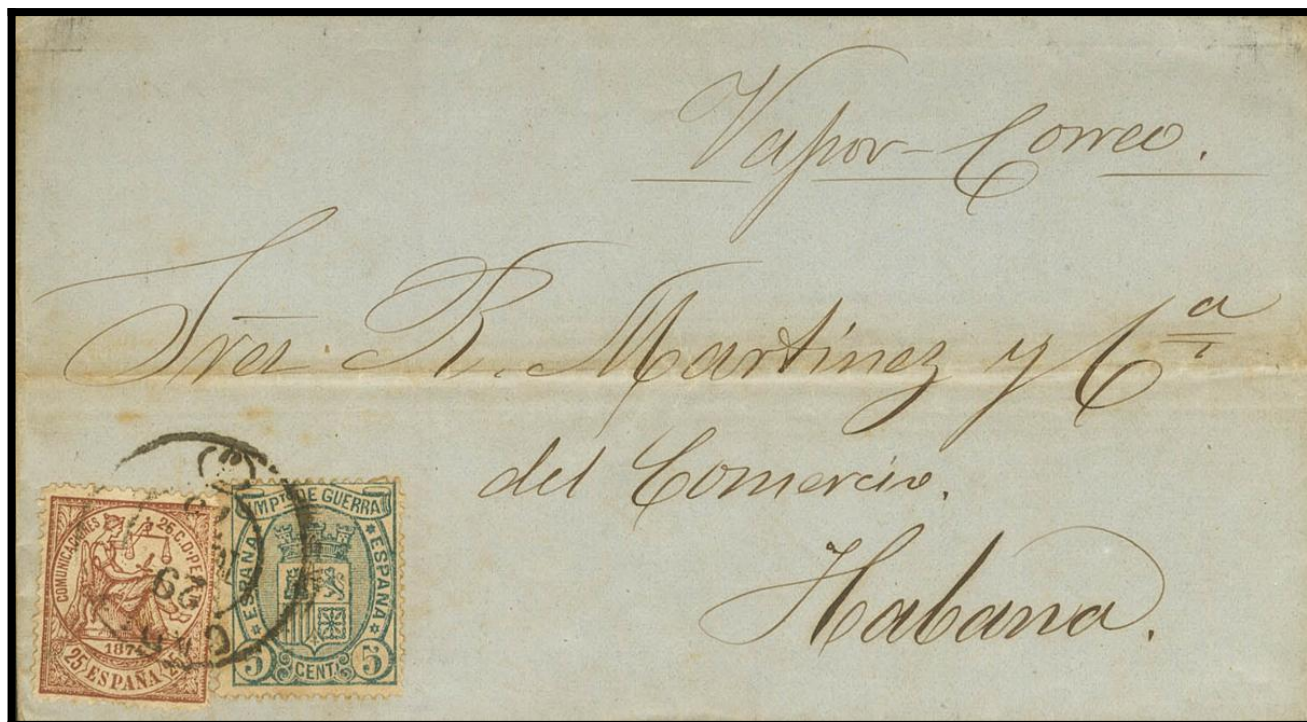 Vapor-Correo.
Sres. R. Martinez y Cª
del Comercio.
Habana.
COMUNICACIONES 25 C. D. PE
1874
25 ESPAÑA 25
IMPTO DE GUERRA
ESPAÑA ESPAÑA
5 CENT. 5
29